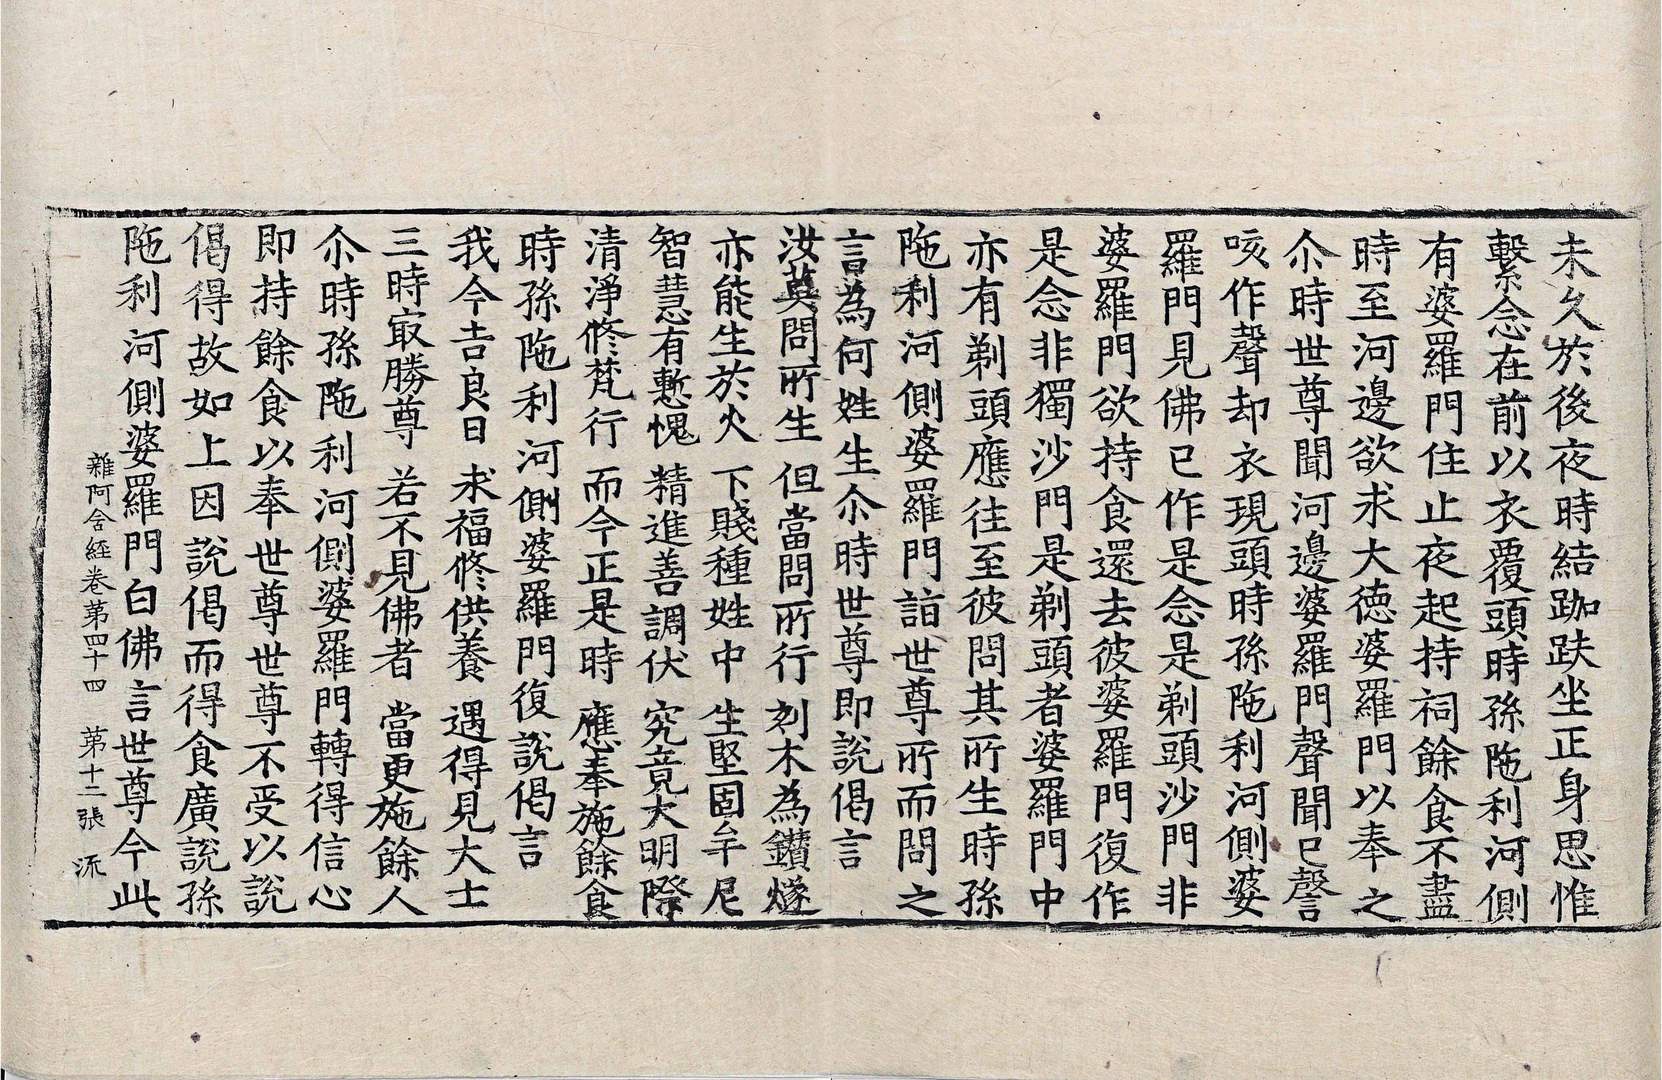 未久於後夜時結跏趺坐正身思惟
繫念在前以衣覆頭時孫陁利河側
有婆羅門住止夜起持祠餘食不盡
時至河邊欲求大德婆羅門以奉之
尒時世尊聞河邊婆羅門聲聞已謦
咳作聲却衣現頭時孫陁利河側婆
羅門見佛已作是念是剃頭沙門非
婆羅門欲持食還去彼婆羅門復作
是念非獨沙門是剃頭者婆羅門中
亦有剃頭應往至彼問其所生時孫
陁利河側婆羅門詣世尊所而問之
言為何姓生尒時世尊即說偈言
汝莫問所生 但當問所行 刻木為鑽燧
亦能生於火 下賤種姓中 生堅固牟尼
智慧有慙愧 精進善調伏 究竟大明際
清淨修梵行 而今正是時 應奉施餘食
時孫陁利河側婆羅門復說偈言
我今吉良日 求福修供養 遇得見大士
三時㝡勝尊 若不見佛者 當更施餘人
尒時孫陁利河側婆羅門轉得信心
即持餘食以奉世尊世尊不受以說
偈得故如上因說偈而得食廣說孫
陁利河側婆羅門白佛言世尊今此
雜阿含經卷第四十四 第十二張 流